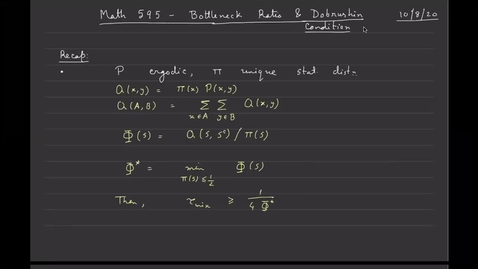 Math 595 - Bottleneck Ratio & Dobrushin Condition 10/8/20
Recap:
• P ergodic, π unique stat. dist.
Q(x,y) = π(x) P(x,y)
Q(A,B) = Σ_{x∈A} Σ_{y∈B} Q(x,y)
Φ(S) = Q(S, Sᶜ) / π(S)
Φ* = min_{π(S) ≤ 1/2} Φ(S)
Then, τ_mix ≥ 1/(4 Φ*)